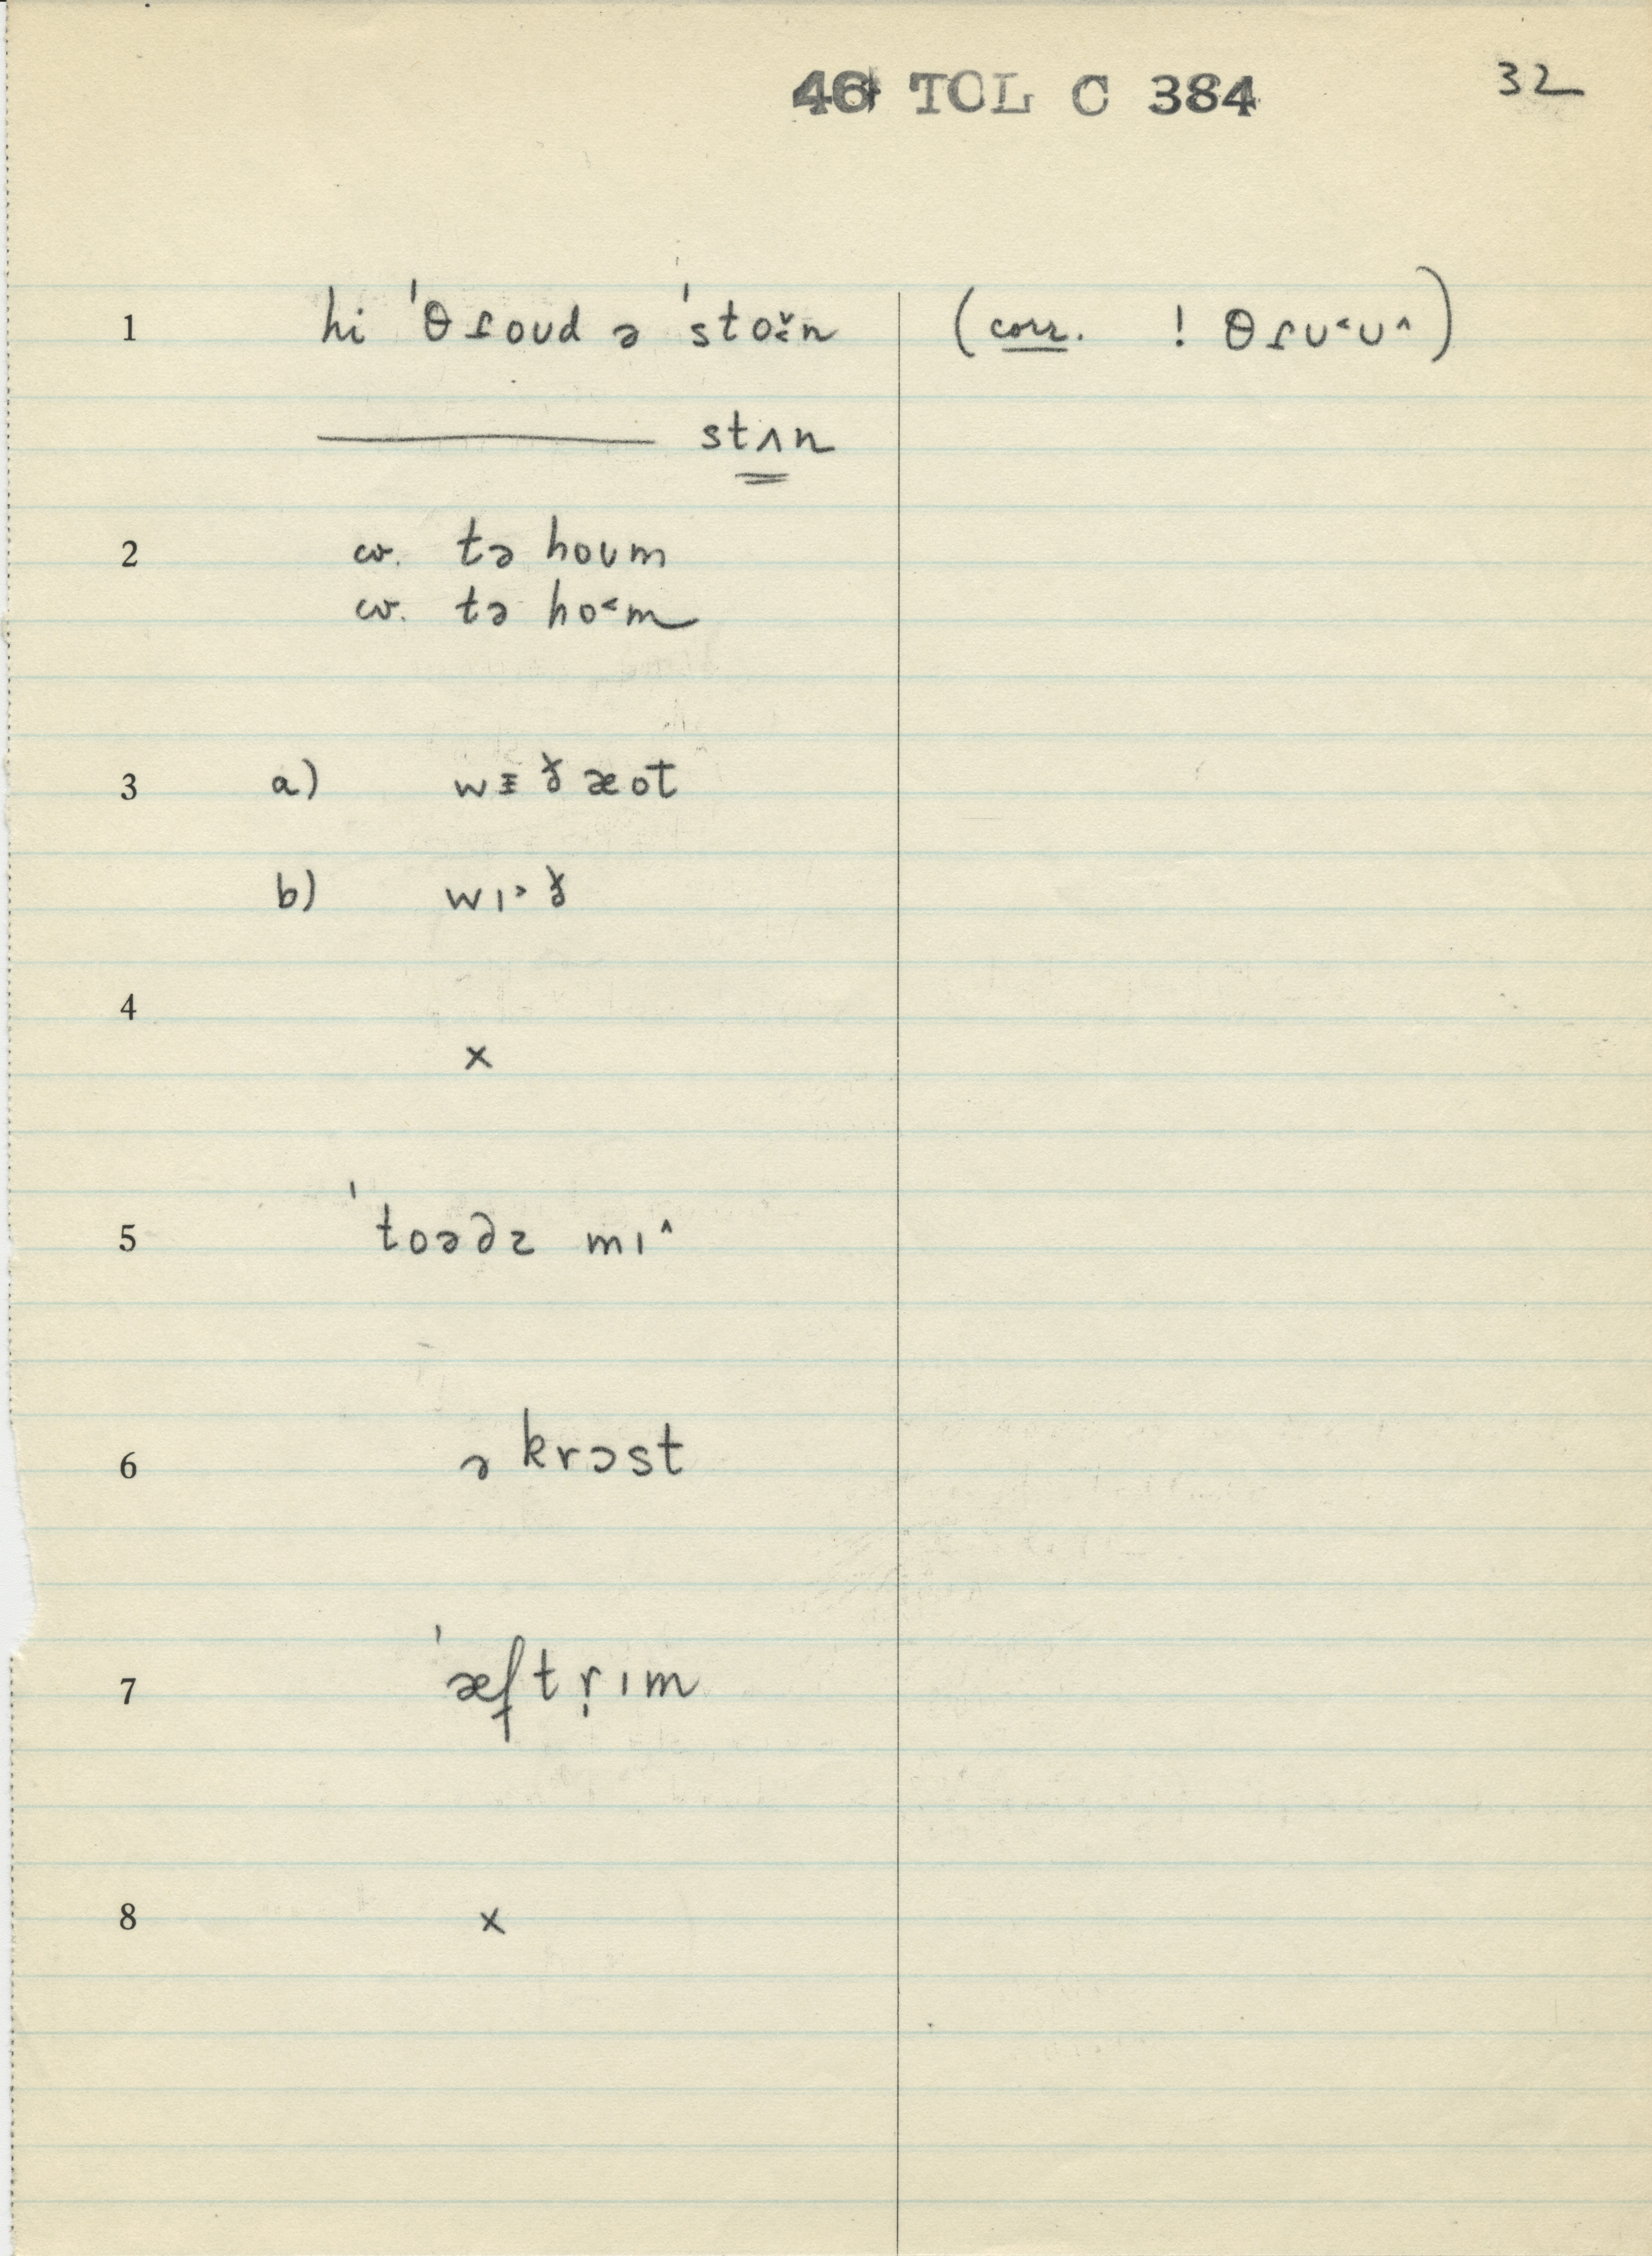 46 TOL C 384 32
1 hi ˈθɾoud ə ˈsto̬˂n (corr. ! θɾʊ˂ʊ˄)
——— stʌn
2 cv. tə houm
cv. tə ho˂m
3 a) wᵻð æot
b) wɪ˃ð
4
×
5 ˈtoəðz mɪ˄
6 ə krɔst
7 ˈæftr̩ɪm
8 ×